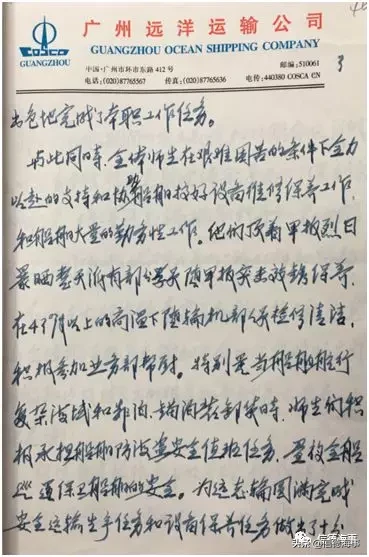 广州远洋运输公司
GUANGZHOU OCEAN SHIPPING COMPANY
GUANGZHOU
中国·广州市环市东路412号
邮编:510061
电话:(020)87765567
传真:(020)87765636
电传:440380 COSCA CN
3
出色地完成了本职工作任务。
与此同时,全体师生在艰难困苦的条件下全力
以赴的支持和协助船舶搞好设备维修保养工作,
和船舶大量的勤务性工作。他们顶着甲板烈日
暴晒整天派有部分学员随甲板突击敲锈保养,
在43℃以上的高温下随轮机部分学员检修清洁,
积极参加业务部帮厨。特别是当船舶航行
复杂海域和靠泊、锚泊装卸货时,师生们积
极承担船舶防海盗安全值班任务,昼夜全船
巡逻保卫船舶的安全。为远志轮圆满完成
安全运输生产任务和设备保养任务做出了十分
头条@信德海事
信德海事